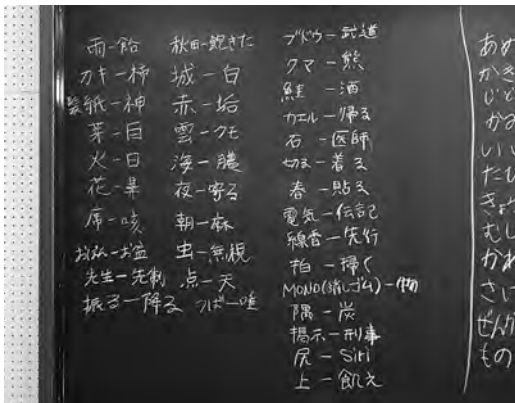 雨ー飴
カキー柿
紙ー神
芽ー目
火ー日
花ー鼻
席ー咳
ーお盆
先生ー先制
振るー降る
秋田ー飽きた
城ー白
赤ー垢
雲ークモ
海ー膿
夜ー寄る
朝ー麻
虫ー無視
点ー天
つばー唾
ブドウー武道
クマー熊
鮭ー酒
カエルー帰る
石ー医師
切るー着る
春ー貼る
電気ー伝記
線香ー先行
ー掃く
MONO(消しゴム)ー物
隅ー炭
掲示ー刑事
尻ーSiri
上ー飢え
あめ
かき
いい
たび
むし
かわ
さい
もの